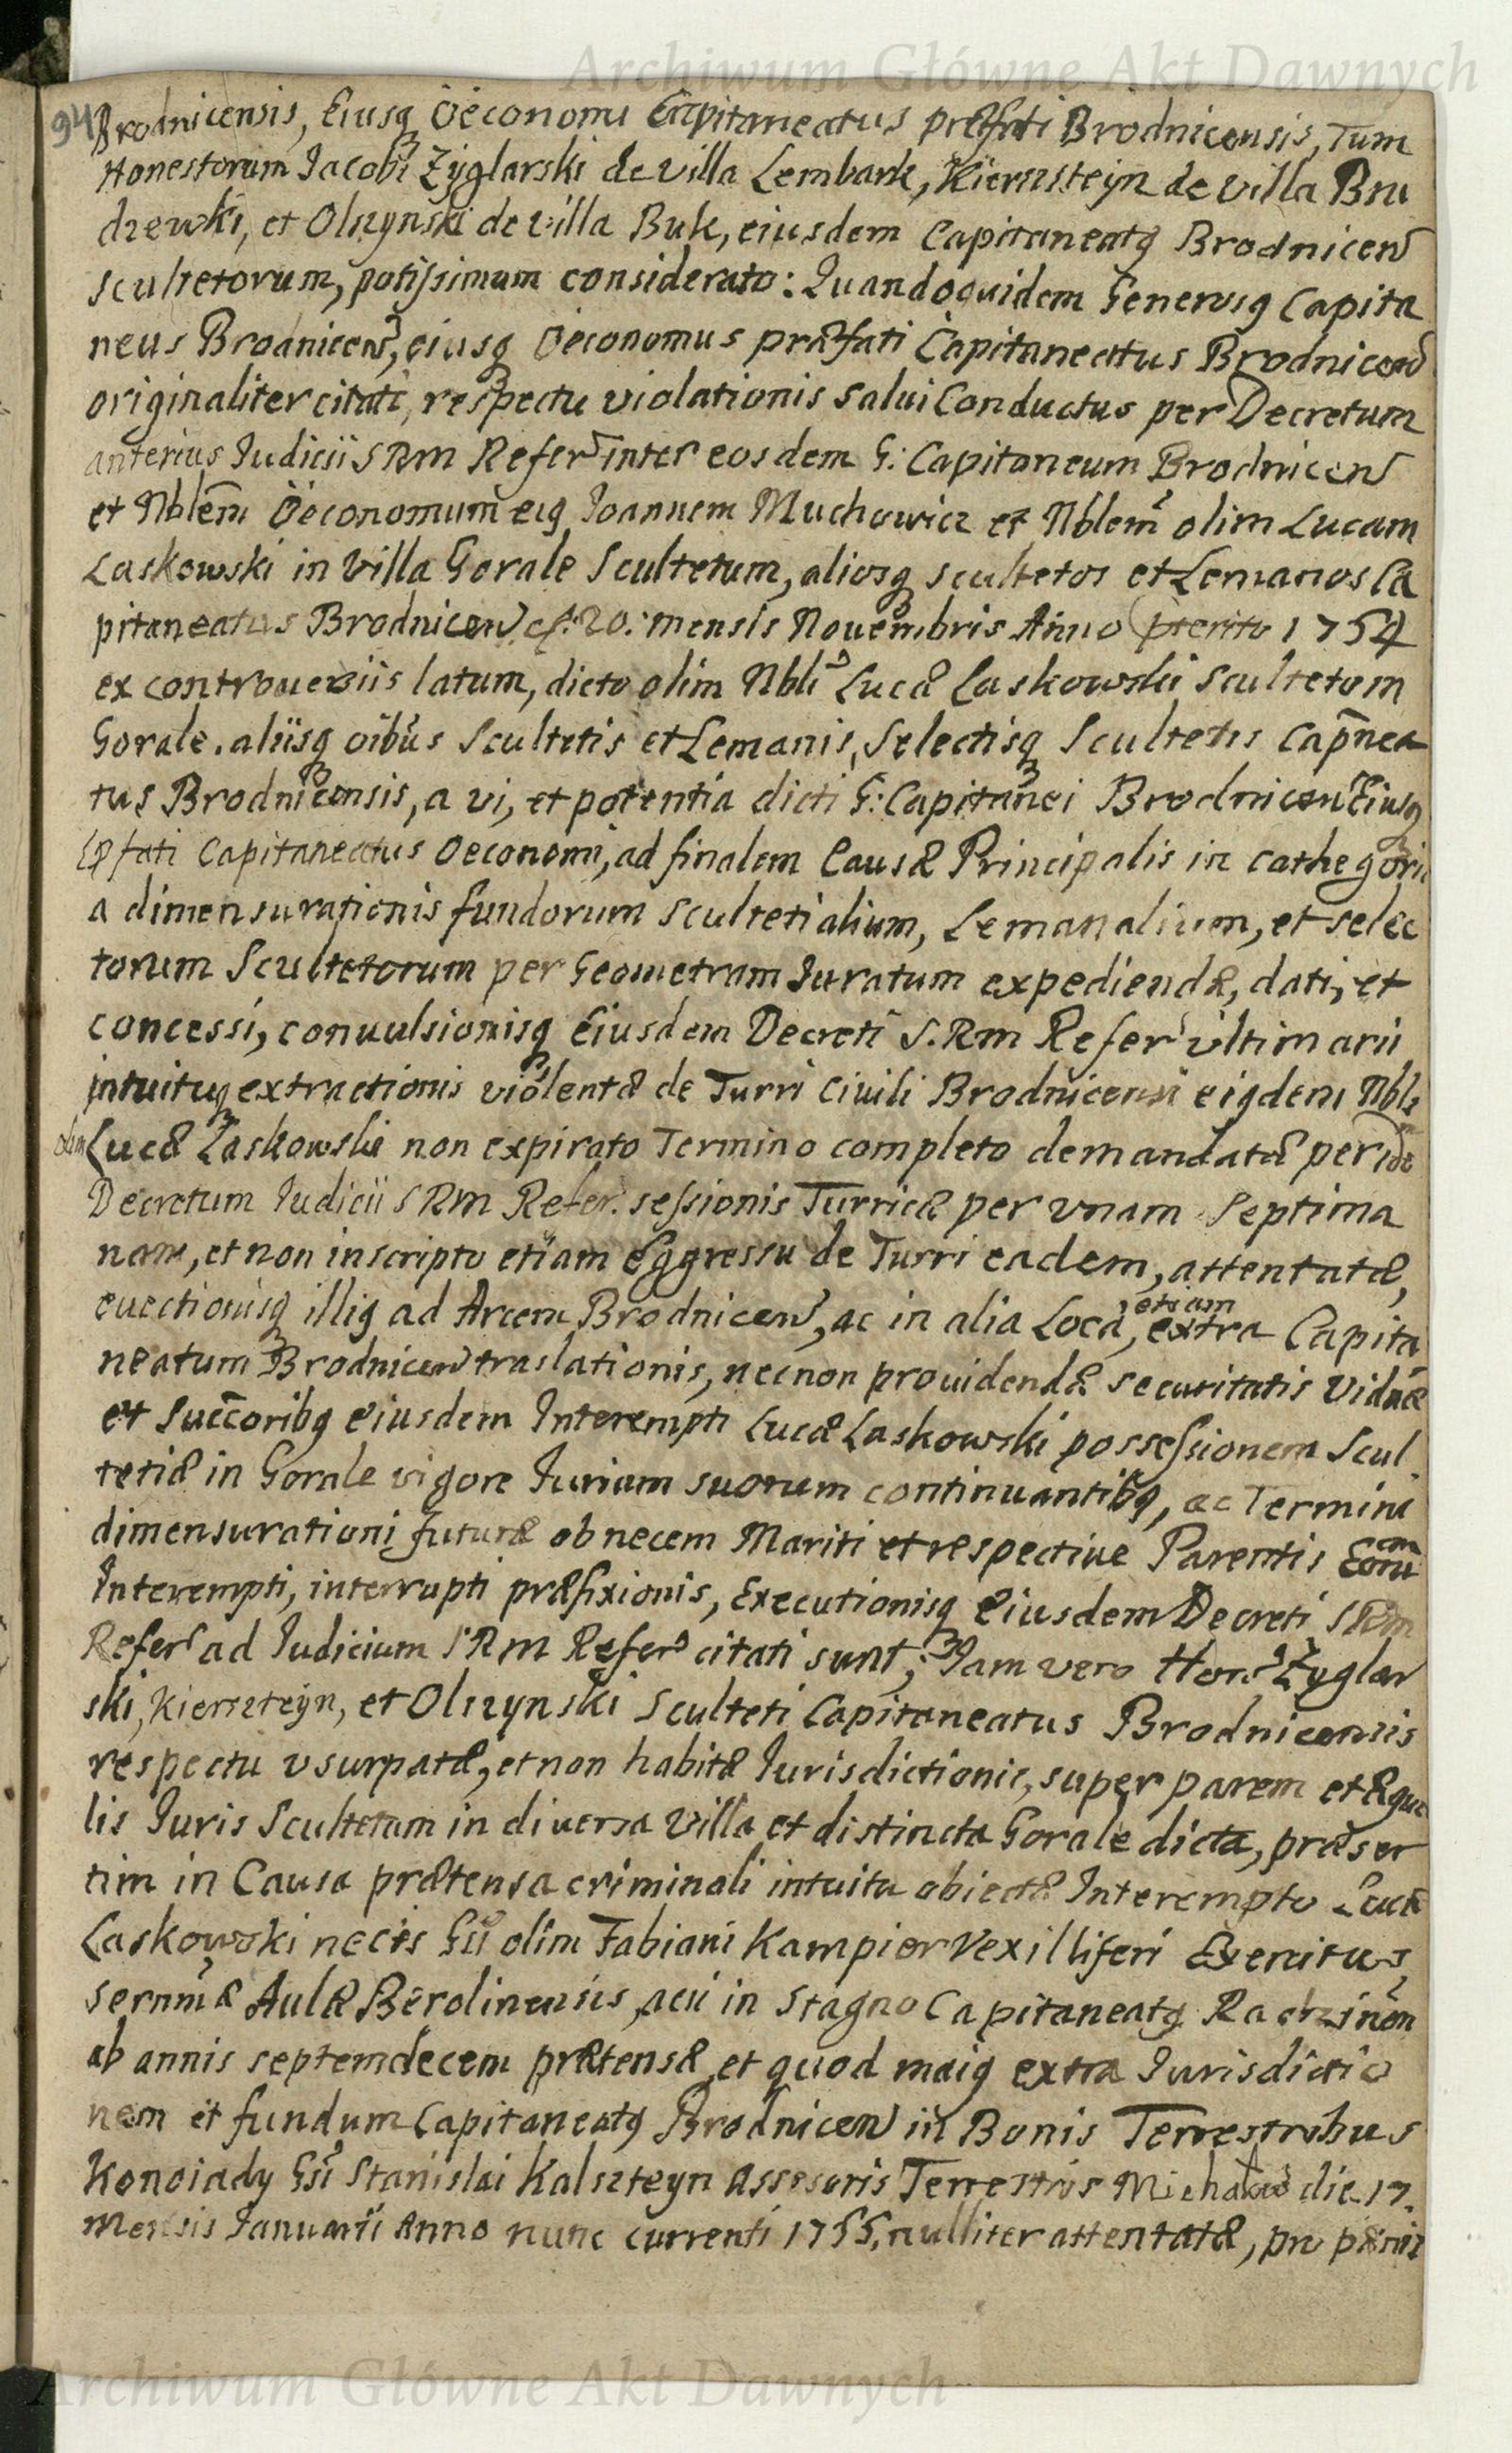 Archiwum Główne Akt Dawnych
94
Brodnicensis, Eiusq Oeconomi Capitaneatus præfati Brodnicensis, Tum
Honestorum Jacobi Zyglarski de Villa Lembark, Kiernszteyn de Villa Bru
dzewki, et Olszynski de villa Buk, eiusdem Capitaneatq Brodnicen
Scultetorum, potissimum considerato: Quandoquidem Generosq Capita
neus Brodnicen, eiusq Oeconomus præfati Capitaneatus Brodnicen
originaliter citati, respectu violationis Salui Conductus per Decretum
anterius Judicii SRM Refer inter eosdem G: Capitaneum Brodnicen
et Nblem Oeconomum eiq Joannem Muchowicz et Nblem olim Lucam
Laskowski in Villa Gorale Scultetum, aliosq scultetos et Lemanos Ca
pitaneatus Brodnicen 20. mensis Nouembris Anno 1754
ex controuersiis latum, dicto olim Nbli Lucæ Laskowski Scultetum
Gorale. aliisq oibus Scultetis et Lemanis, Selectisq Scultetis Capnea
tus Brodnicensis, a vi, et potentia dicti G: Capitanei Brodnicen Eiusq
pfati Capitaneatus Oeconomi, ad finalem Causæ Principalis in cathegori
a dimensurationis fundorum Scultetialium, Lemanalium, et selec
torum Scultetorum per Geometram Juratum expediendæ, dati, et
concessi, conuulsionisq Eiusdem Decreti S.RM Refer vltimarii
intuituq extractionis violentæ de Turri Ciuili Brodnicensi eiqdem Nbls
olim Lucæ Laskowski non expirato Termino completo demandatæ per ide
Decretum Judicii SRM Refer. sessionis Turricæ per vnam Septima
nam, et non inscripto etiam Eggressu de Turri eadem, attentatæ,
euectionisq illiq ad Arcem Brodnicen, ac in alia Loca, etiam extra Capita
neatum Brodnicen traslationis, necnon prouidendæ securitatis Viduæ
et Succoribq eiusdem Interempti Lucæ Laskowski possessionem Scul
tetiæ in Gorale vigore Jurium suorum continuantibq, ac Termini
dimensurationi futuræ ob necem Mariti et respectiue Parentis Eorum
Interempti, interrupti præfixionis, Executionisq Eiusdem Decreti SRM
Refer ad Judicium SRM Refer citati sunt; Jam vero Hon Zyglar
ski, Kierszteyn, et Olszynski Sculteti Capitaneatus Brodnicensis
respectu vsurpatæ, et non habitæ Jurisdictionis, super parem et æqua
lis Juris Scultetum in diuersa Villa et distincta Gorale dicta, præser
tim in Causa prætensa criminali intuitu obiectæ Interempto Lucæ
Laskowski necis Gsi olim Fabiani Kampior Vexilliferi Exercitus
sernmæ Aulæ Berolinensis, acu in Stagno Capitaneatq Radzinen
ab annis septemdecem prætensæ, et quod maiq extra Jurisdictio
nem et fundum Capitaneatq Brodnicen in Bonis Terrestribus
Konoiady Gsi Stanislai Kalszteyn Assesoris Terrestris Michalo die 17.
Mensis Januarii Anno nunc currenti 1755, nulliter attentatæ, pro pænis
Archiwum Główne Akt Dawnych